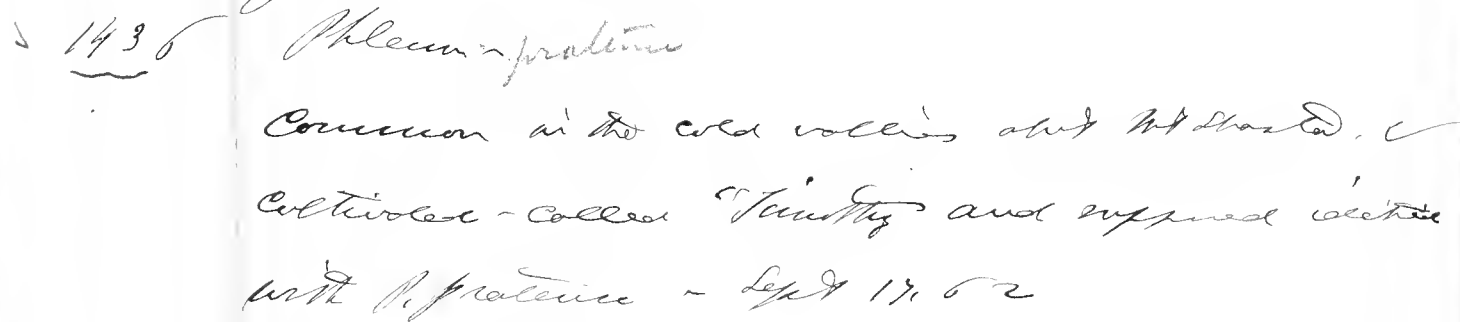 1436 Phleum pratense
Common in the cold vallies abut Mt Shasta. &
cultivated - called "Timothy" and supposed identical
with P. pratense - Sept 17, 62